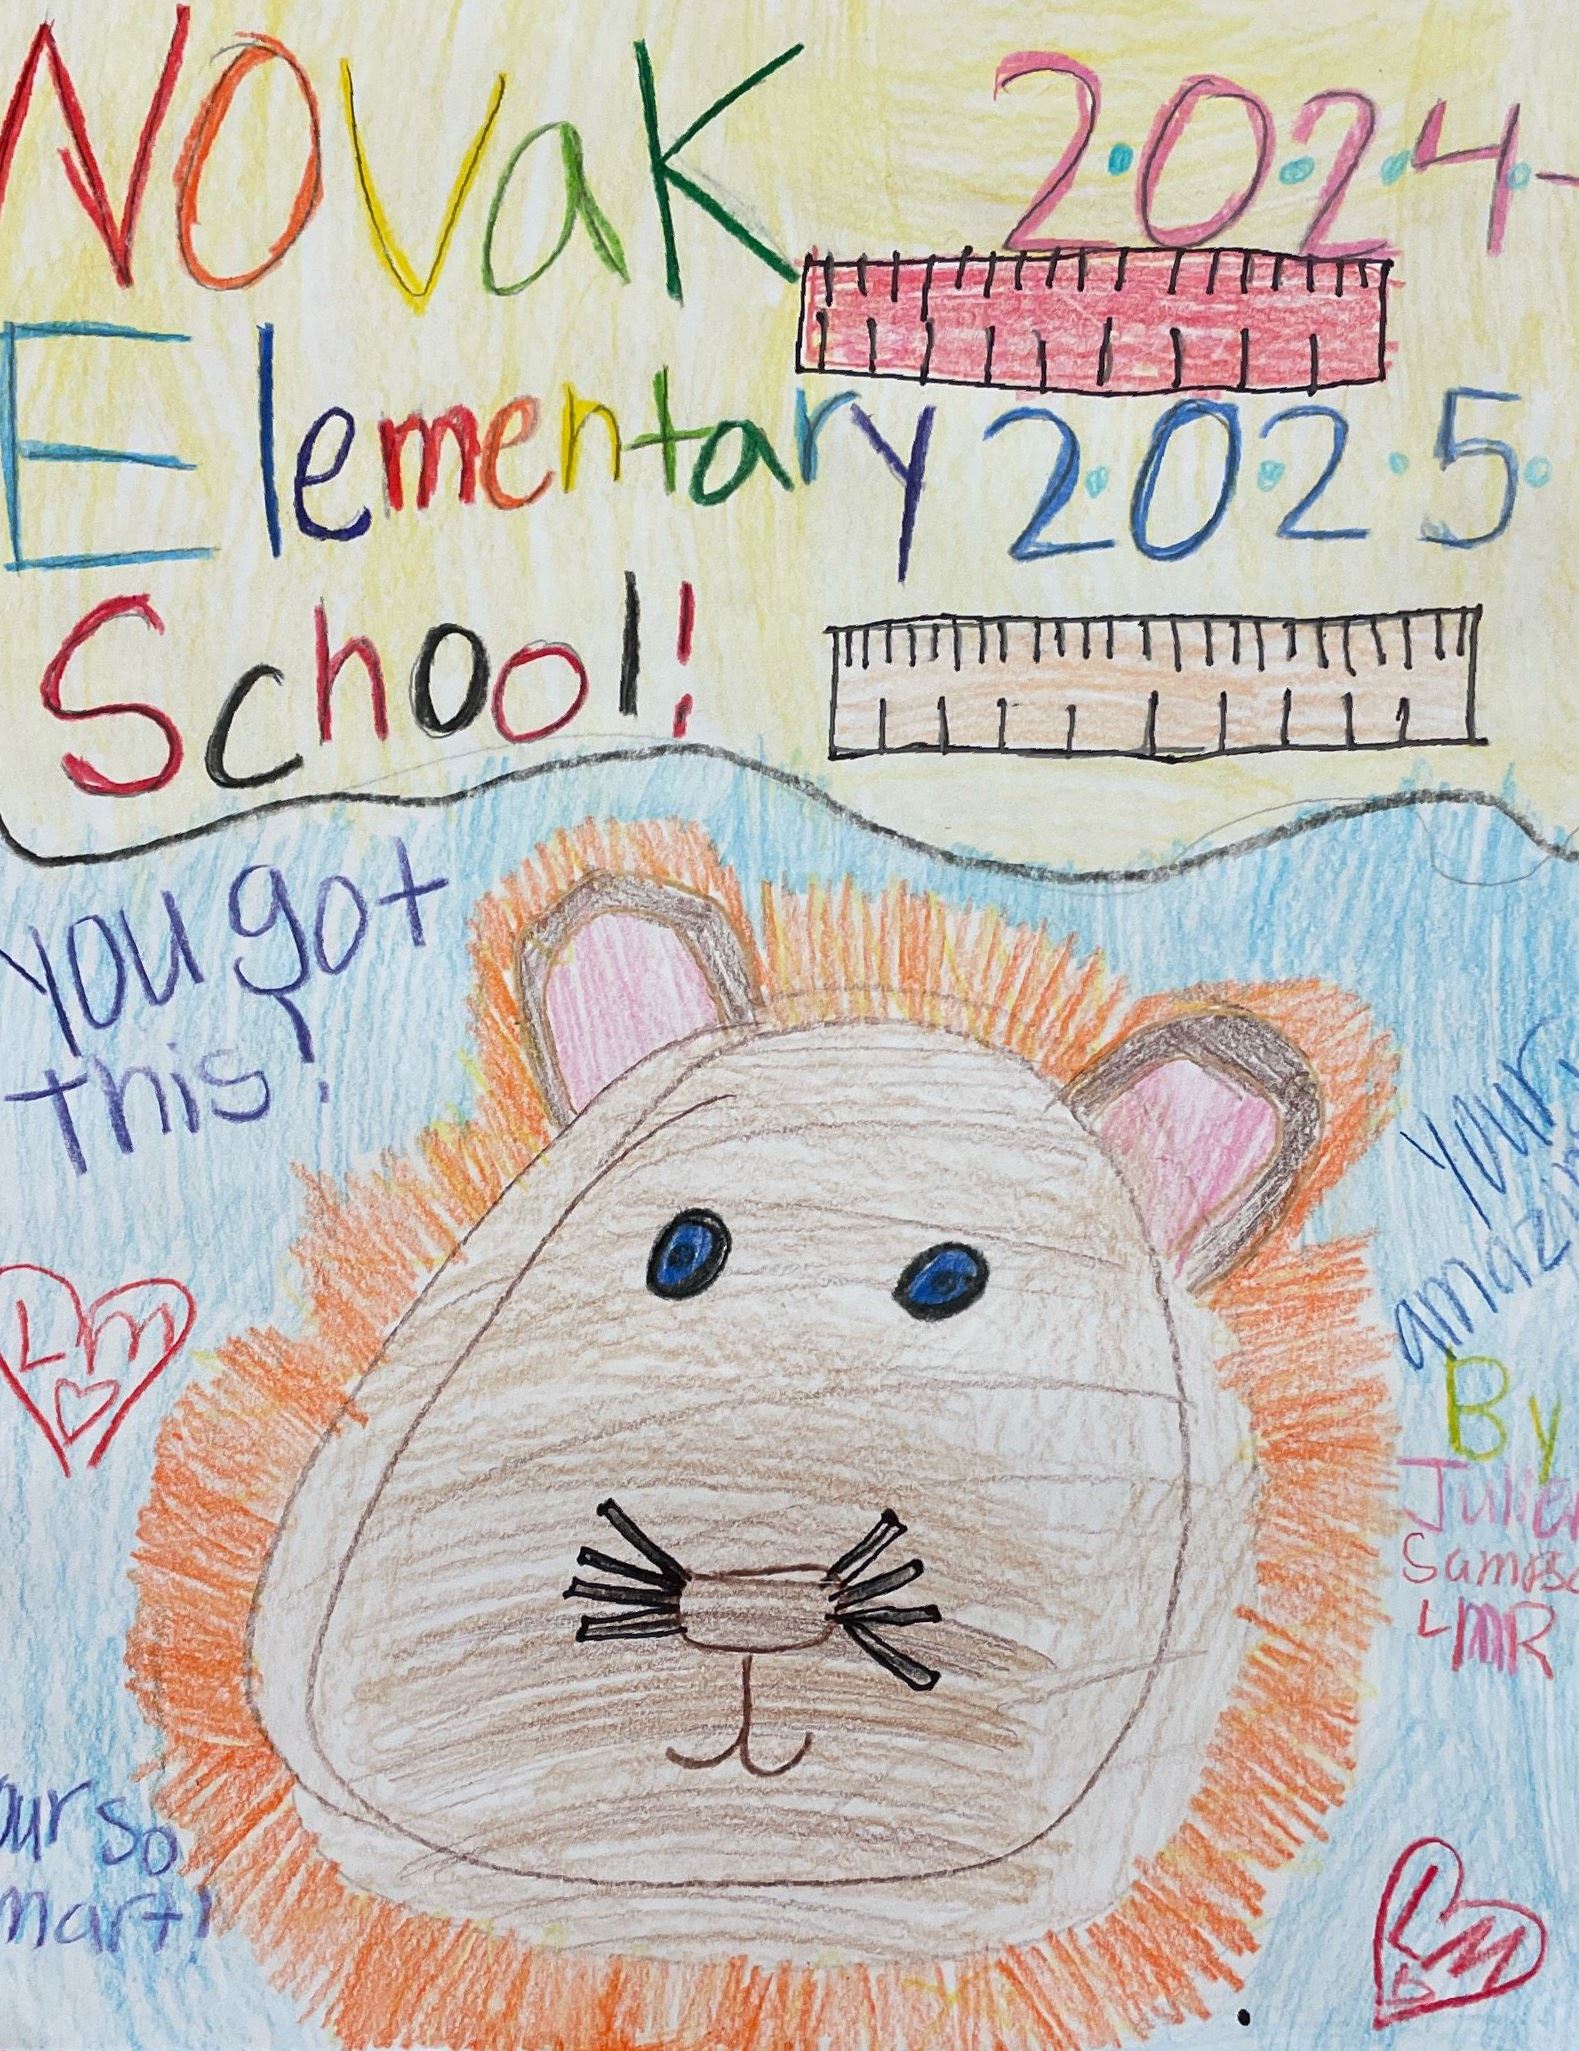 Novak 2.0.2.4.-
Elementary 2.0.2.5.
School!
you got
this!
Your
LM
By
Samps
LMR
our so
mart!
LM